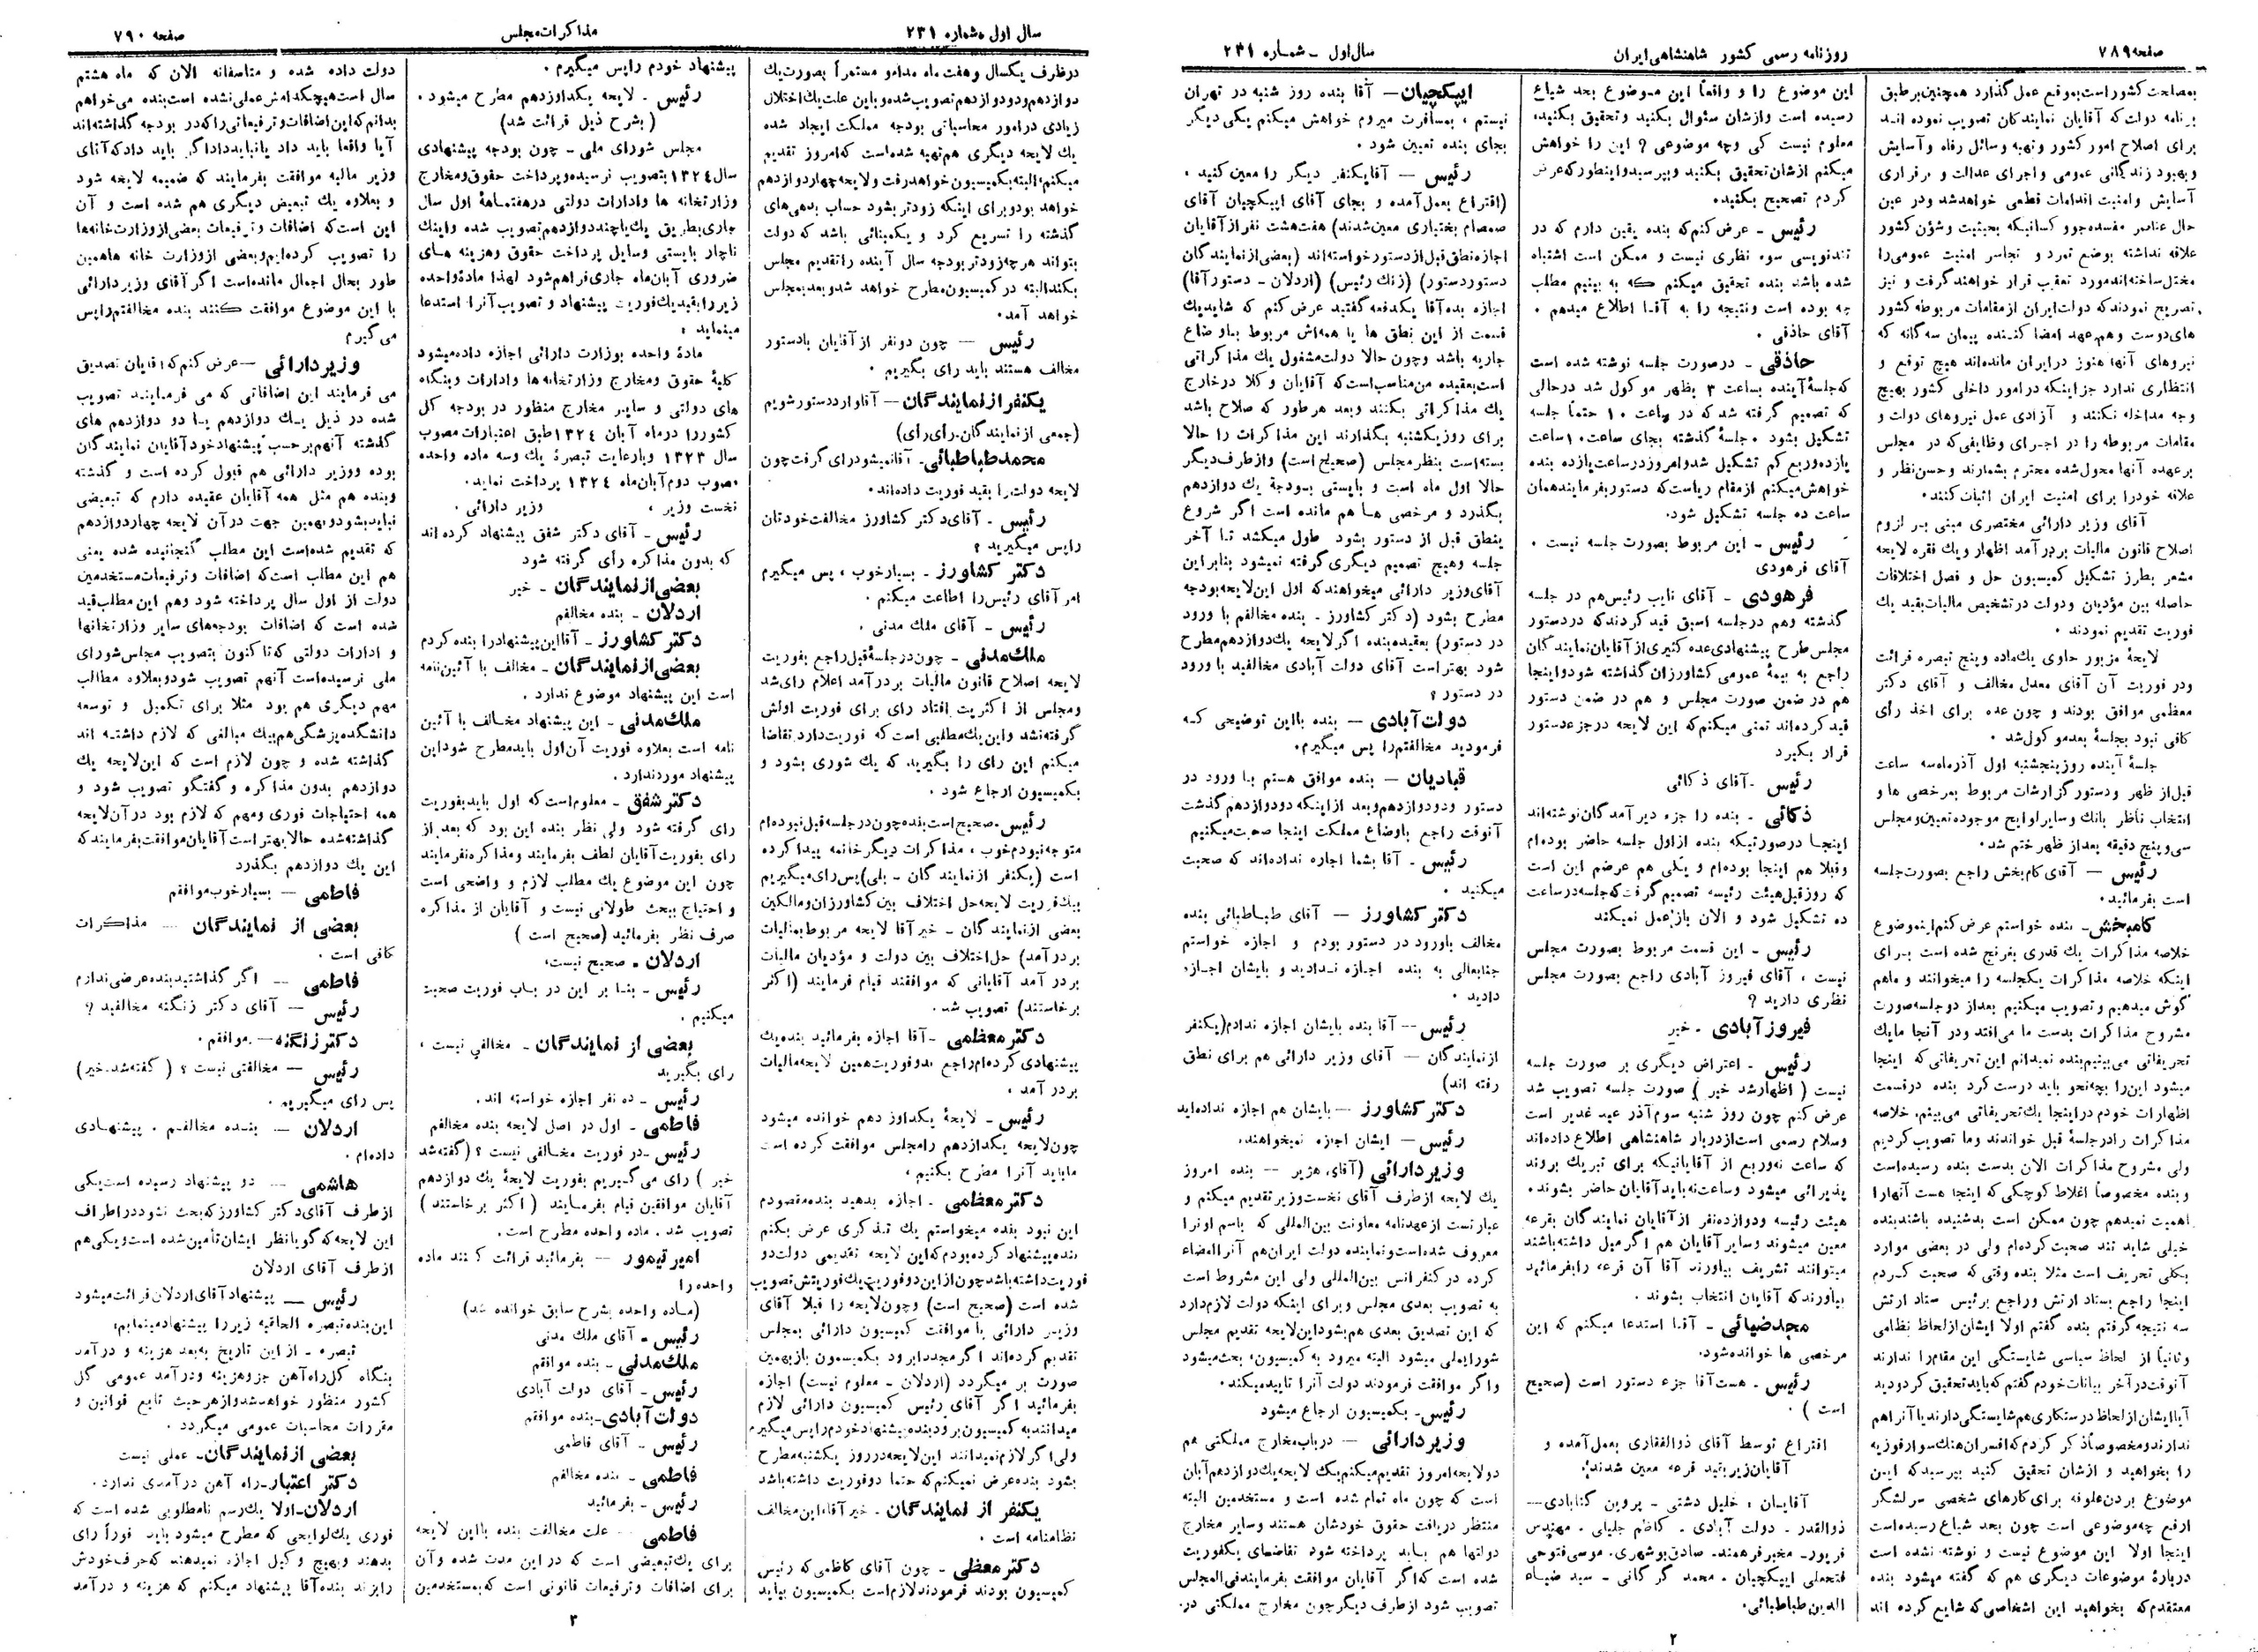 صفحه ۷۸۹
روزنامه رسمی کشور شاهنشاهی ایران
سال اول ـ شماره ۲۳۱
بمصلحت کشور است بموقع عمل گذارد همچنین بر طبق
برنامه دولت که آقایان نمایندگان تصویب نموده انـد
برای اصلاح امور کشور و تهیه وسائل رفاه و آسایش
و بهبود زندگانی عمومی و اجرای عدالت و برقراری
آسایش و امنیت اقدامات قطعی خواهد شد و در عین
حال عناصر مفسده جو و کسانیکه بحیثیت و شؤن کشور
علاقه نداشته بوضع تمرد و تجاسر امنیت عمومی را
مختل ساخته اند مورد تعقیب قرار خواهند گرفت و نیز
تصریح نمودند که دولت ایران از مقامات مربوطه کشور
های دوست و هم عهد امضا کننده پیمان سه گانه که
نیروهای آنها هنوز در ایران مانده اند هیچ توقع و
انتظاری ندارد جز اینکه در امور داخلی کشور بهیچ
وجه مداخله نکنند و آزادی عمل نیروهای دولت و
مقامات مربوطه را در اجرای وظایفی که در مجلس
بر عهده آنها محول شده محترم بشمارند و حسن نظر و
علاقه خود را برای امنیت ایران اثبات کنند.
آقای وزیر دارائی مختصری مبنی بر لزوم
اصلاح قانون مالیات بر در آمد اظهار و یک فقره لایحه
مشعر بطرز تشکیل کمیسیون حل و فصل اختلافات
حاصله بین مؤدیان و دولت در تشخیص مالیات بقید یک
فوریت تقدیم نمودند .
لایحهٔ مزبور حاوی یک ماده و پنج تبصره قرائت
و در فوریت آن آقای معدل مخالف و آقای دکتر
معظمی موافق بودند و چون عده برای اخذ رأی
کافی نبود بجلسهٔ بعد موکول شد .
جلسهٔ آینده روز پنجشنبه اول آذر ماه سه ساعت
قبل از ظهر و دستور گزارشات مربوط بمرخصی ها و
انتخاب ناظر بانک و سایر لوایح موجوده تعیین و مجلس
سی و پنج دقیقه بعد از ظهر ختم شد.
رئیس — آقای کام بخش راجع بصورت جلسه
است بفرمائید.
کامبخش- بنده خواستم عرض کنم اینموضوع
خلاصه مذاکرات یک قدری بغرنج شده است بـرای
اینکه خلاصه مذاکرات یکجلسه را میخوانند و ماهم
گوش میدهیم و تصویب میکنیم بعد از دو جلسه صورت
مشروح مذاکرات بدست ما می افتد و در آنجا ما یک
تحریفاتی می بینیم بنده نمیدانم این تحریفاتی که اینجا
میشود این را بچه نحو باید درست کرد بنده در قسمت
اظهارات خودم در اینجا یک تحریفاتی می بینم. خلاصه
مذاکرات را در جلسهٔ قبل خواندند و ما تصویب کردیم
ولی مشروح مذاکرات الان بدست بنده رسیده است
و بنده مخصوصاً اغلاط کوچکی که اینجا هست آنها را
اهمیت نمیدهم چون ممکن است بد شنیده باشند بنده
خیلی شاید تند صحبت کرده ام ولی در بعضی موارد
بکلی تحریف است مثلا بنده وقتی که صحبت کـردم
اینجا راجع بستاد ارتش و راجع برئیس ستاد ارتش
سه نتیجه گرفتم بنده گفتم اولا ایشان از لحاظ نظامی
و ثانیاً از لحاظ سیاسی شایستگی این مقام را ندارند
آنوقت در آخر بیانات خودم گفتم که باید تحقیق کرد و دید
آیا ایشان از لحاظ درستکاری هم شایستگی دارند یا آنرا هم
ندارند و مخصوصاً ذکر کردم که افسران هنگ سوار فوزیه
را بخواهید و ازشان تحقیق کنید بپرسید که ایـن
موضوع بردن علوفه برای کارهای شخصی سرلشگر
ارفع چه موضوعی است چون بحد شیاع رسیده است
اینجا اولا این موضوع نیست و نوشته نشده است
دربارهٔ موضوعات دیگری هم که گفته میشود بنده
معتقدم که بخواهید این اشخاصی که شایع کرده اند
این موضوع را و واقعاً این موضوع بحد شیاع
رسیده است و ازشان سئوال بکنید و تحقیق بکنید،
معلوم نیست کی وچه موضوعی ؟ این را خواهش
میکنم ازشان تحقیق بکنید و بپرسید و اینطور که عرض
کردم تصحیح بکنید.
رئیس ـ عرض کنم که بنده یقین دارم که در
تندنویسی سوء نظری نیست و ممکن است اشتباه
شده باشد بنده تحقیق میکنم که به بینم مطلب
چه بوده است و نتیجه را به آقـا اطلاع میدهم .
آقای حاذقی .
حاذقی ـ در صورت جلسه نوشته شده است
که جلسهٔ آینده بساعت ۳ بظهر موکول شد در حالی
که تصمیم گرفته شد که در ساعت ۱۰ حتماً جلسه
تشکیل بشود . جلسهٔ گذشته بجای ساعت ۱۰ ساعت
یازده و ربع کم تشکیل شد و امروز در ساعت یازده بنده
خواهش میکنم از مقام ریاست که دستور بفرمایند همان
ساعت ده جلسه تشکیل شود.
رئیس ـ این مربوط بصورت جلسه نیست .
آقای فرهودی
فرهودی ـ آقای نایب رئیس هم در جلسه
گذشته و هم در جلسه اسبق قید کردند که در دستور
مجلس طرح پیشنهادی عده کثیری از آقایان نمایندگان
راجع به بیمهٔ عمومی کشاورزان گذاشته شود و اینجا
هم در ضمن صورت مجلس و هم در ضمن دستور
قید کرده اند تمنی میکنم که این لایحه در جزء دستور
قرار بگیرد
رئیس ـ آقای ذکائی
ذکائی ـ بنده را جزء دیر آمدگان نوشته اند
اینجـا در صورتیکه بنده از اول جلسه حاضر بوده ام
و قبلا هم اینجا بوده ام و یکی هم عرضم این است
که روز قبل هیئت رئیسه تصمیم گرفت که جلسه در ساعت
ده تشکیل شود و الان باز عمل نمیکند
رئیس ـ این قسمت مربوط بصورت مجلس
نیست ، آقای فیروز آبادی راجع بصورت مجلس
نظری دارید ؟
فیروزآبادی ـ خیر
رئیس ـ اعتراض دیگری بر صورت جلسه
نیست ( اظهار شد خیر ) صورت جلسه تصویب شد
عرض کنم چون روز شنبه سوم آذر عید غدیر است
و سلام رسمی است از دربار شاهنشاهی اطلاع داده اند
که ساعت نه و ربع از آقایانیکه برای تبریک بروند
پذیرائی میشود و ساعت نه باید آقایان حاضر بشوند.
هیئت رئیسه و دوازده نفر از آقایان نمایندگان بقرعه
معین میشوند و سایر آقایان هم اگر میل داشته باشند
میتوانند تشریف بیاورند آقا آن قرعه را بفرمائید
بیاورند که آقایان انتخاب بشوند .
مجد ضیائی ـ آقـا استدعا میکنم که این
مرخصی ها خوانده شود.
رئیس ـ هست آقا جزء دستور است (صحیح
است ) .
اقتراع توسط آقای ذوالفقاری بعمل آمده و
آقایان زیر بقید قرعه معین شدند:
آقایـان : خلیل دشتی ـ پروین گنابادی ـ
ذوالقدر ـ دولت آبادی ـ کاظم جلیلی ـ مهندس
فریور ـ مخبر فرهمند ـ صادق بوشهری ـ موسی فتوحی
فتحعلی ایپکچیان ـ محمد گرگانی ـ سید ضیاء
الدین طباطبائی.
ایپکچیان — آقا بنده روز شنبه در تهران
نیستم ، بمسافرت میروم خواهش میکنم یکی دیگر
بجای بنده تعیین شود .
رئیس — آقا یکنفر دیگر را معین کنید ،
(اقتراع بعمل آمده و بجای آقای ایپکچیان آقای
صمصام بختیاری معین شدند) هفت هشت نفر از آقایان
اجازه نطق قبل از دستور خواسته اند (بعضی از نمایندگان
دستور دستور) (زنگ رئیس) (اردلان ـ دستور آقا)
اجازه بده آقا یکدفعه گفتید عرض کنم که شاید یک
قسمت از این نطق ها یا همه اش مربوط باوضاع
جاریه باشد و چون حالا دولت مشغول یک مذاکراتی
است بعقیده من مناسب است که آقایان وکلا در خارج
یک مذاکراتی بکنند و بعد هر طور که صلاح باشد
برای روز یکشنبه بگذارند این مذاکرات را حالا
بسته است بنظر مجلس (صحیح است) و از طرف دیگر
حالا اول ماه است و بایستی بـودجهٔ یک دوازدهم
بگذرد و مرخصی هـا هم مانده است اگر شروع
بنطق قبل از دستور بشود طول میکشد تـا آخر
جلسه و هیچ تصمیم دیگری گرفته نمیشود بنابراین
آقای وزیر دارائی میخواهند که اول این لایحه بودجه
مطرح بشود (دکتر کشاورز ـ بنده مخالفم با ورود
در دستور) بعقیده بنده اگر لایحه یک دوازدهم مطرح
شود بهتر است آقای دولت آبادی مخالفید با ورود
در دستور ؟
دولت آبادی — بنده با این توضیحی کـه
فرمودید مخالفتم را پس میگیرم.
قبادیان — بنده موافق هستم بـا ورود در
دستور و دو دوازدهم و بعد از اینکه دو دوازدهم گذشت
آنوقت راجع باوضاع مملکت اینجا صحبت میکنیم
رئیس ـ آقا بشما اجازه نداده اند که صحبت
میکنید .
دکتر کشاورز — آقای طبـاطبائی بنده
مخالف با ورود در دستور بودم و اجازه خواستم
جنابعالی به بنده اجازه نـدادید و بایشان اجـازه
دادید .
رئیس — آقا بنده بایشان اجازه ندادم (یکنفر
از نمایندگان — آقای وزیر دارائی هم برای نطق
رفته اند)
دکتر کشاورز — بایشان هم اجازه نداده اید
رئیس — ایشان اجازه نمیخواهند.
وزیر دارائی (آقای هژیر ــ بنده امروز
یک لایحه از طرف آقای نخست وزیر تقدیم میکنم و
عبارتست از عهدنامه معاونت بین المللی که باسم اونرا
معروف شده است و نماینده دولت ایران هم آنرا امضاء
کرده در کنفرانس بین المللی ولی این مشروط است
به تصویب بعدی مجلس و برای اینکه دولت لازم دارد
که این تصدیق بعدی هم بشود این لایحه تقدیم مجلس
شورایملی میشود البته میرود به کمیسیون، بحث میشود
و اگر موافقت فرمودند دولت آنرا تایید میکند.
رئیس ـ بکمیسیون ارجاع میشود
وزیر دارائی — در باب مخارج مملکتی هم
دو لایحه امروز تقدیم میکنم یک لایحه یک دوازدهم آبان
است که چون ماه تمام شده است و مستخدمین البته
منتظر دریافت حقوق خودشان هستند و سایر مخارج
دولتها هم بـایـد پرداخته شود تقاضای یکفوریت
شده است که اگر آقایان موافقت بفرمایند فی المجلس
تصویب شود از طرف دیگر چون مخارج مملکتی در
۲
سال اول شماره ۲۳۱
مذاکرات مجلس
صفحه ۷۹۰
در ظرف یکسال و هفت ماه مداوم و مستمراً بصورت یک
دوازدهم و دو دوازدهم تصویب شده و باین علت یک اختلال
زیادی در امور محاسباتی بودجه مملکت ایجاد شده
یک لایحه دیگری هم تهیه شده است که امروز تقدیم
میکنم، البته بکمیسیون خواهد رفت و لایحه چهار دوازدهم
خواهد بود و برای اینکه زودتر بشود حساب بدهی های
گذشته را تسریع کرد و یکمبنائی باشد که دولت
بتواند هرچه زودتر بودجه سال آینده را تقدیم مجلس
بکند البته در کمیسیون مطرح خواهد شد و بعد بمجلس
خواهد آمد.
رئیس — چون دو نفر از آقایان با دستور
مخالف هستند باید رای بگیریم .
یکنفر از نمایندگان— آقا وارد دستور شویم
(جمعی از نمایندگان ـ رأی رأی)
محمد طباطبائی ـ آقا نمیشود رای گرفت چون
لایحه دولت را بقید فوریت داده اند.
رئیس ـ آقای دکتر کشاورز مخالفت خودتان
را پس میگیرید ؟
دکتر کشاورز ـ بسیار خوب ، پس میگیرم
امر آقای رئیس را اطاعت میکنم .
رئیس ـ آقای ملک مدنی .
ملک مدنی ـ چون در جلسهٔ قبل راجع بفوریت
لایحه اصلاح قانون مالیات بر درآمد اعلام رای شد
و مجلس از اکثریت افتاد رای برای فوریت اولش
گرفته نشد و این یک مطلبی است که فوریت دارد، تقاضا
میکنم این رای را بگیرید که یک شوری بشود و
بکمیسیون ارجاع شود .
رئیس ـ صحیح است بنده چون در جلسه قبل نبوده ام
متوجه نبودم خوب ، مذاکرات دیگر خاتمه پیدا کرده
است (یکنفر از نمایندگان ـ بلی) پس رای میگیریم
بیک فوریت لایحه حل اختلاف بین کشاورزان و مالکین
بعضی از نمایندگان ـ خیر آقا لایحه مربوط بمالیات
بر درآمد) حل اختلاف بین دولت و مؤدیان مالیات
بر درآمد آقایانی که موافقند قیام فرمایند (اکثر
برخاستند) تصویب شد.
دکتر معظمی ـ آقا اجازه بفرمائید بنده یک
پیشنهادی کرده ام راجع بدو فوریت همین لایحه مالیات
بر درآمد .
رئیس ـ لایحهٔ یکدوازدهم خوانده میشود
چون لایحه یکدوازدهم را مجلس موافقت کرده است
ما باید آنرا مطرح بکنیم ،
دکتر معظمی ـ اجازه بدهید بنده مقصودم
این نبود بنده میخواستم یک تـذکری عرض بکنم
بنده پیشنهاد کرده بودم که این لایحه تقدیمی دولت دو
فوریت داشته باشد چون از این دو فوریت یک فوریتش تصویب
شده است (صحیح است) و چون لایحه را قبلا آقای
وزیـر دارائی با موافقت کمیسیون دارائی بمجلس
تقدیم کرده اند اگر مجدداً برود بکمیسیون باز بهمین
صورت بر میگردد (اردلان ـ معلوم نیست) اجازه
بفرمائید اگر آقای رئیس کمیسیون دارائی لازم
میدانند به کمیسیون برود بنده پیشنهاد خودم را پس میگیرم
ولی اگر لازم نمیدانند این لایحه در روز یکشنبه مطرح
بشود بنده عرض نمیکنم که حتما دو فوریت داشته باشد
یکنفر از نمایندگان ـ خیر آقا، این مخالف
نظامنامه است .
دکتر معظمی ـ چون آقای کاظمی که رئیس
کمیسیون بودند فرمودند لازم است بکمیسیون بیاید
پیشنهاد خودم را پس میگیرم .
رئیس ـ لایحه یکدوازدهم مطرح میشود .
( بشرح ذیل قرائت شد)
مجلس شورای ملی ـ چون بودجه پیشنهادی
سال ۱۳۲۴ بتصویب نرسیده و پرداخت حقوق و مخارج
وزارتخانه ها و ادارات دولتی در هفتماههٔ اول سال
جاری بطریق یک یا چند دوازدهم تصویب شده و اینک
ناچار بایستی وسایل پرداخت حقوق و هزینه هـای
ضروری آبان ماه جاری فراهم شود لهذا مادهٔ واحده
زیر را بقید یک فوریت پیشنهاد و تصویب آنرا استدعا
مینماید :
مادهٔ واحده بوزارت دارائی اجازه داده میشود
کلیهٔ حقوق و مخارج وزارتخانه ها و ادارات و بنگاه
های دولتی و سایر مخارج منظور در بودجه کل
کشور را در ماه آبان ۱۳۲۴ طبق اعتبارات مصوب
سال ۱۳۲۳ و با رعایت تبصرهٔ یک و سه ماده واحده
مصوب دوم آبان ماه ۱۳۲۴ پرداخت نماید.
نخست وزیر ، وزیر دارائی .
رئیس ـ آقای دکتر شفق پیشنهاد کرده اند
که بدون مذاکره رأی گرفته شود
بعضی از نمایندگان ـ خیر
اردلان ـ بنده مخالفم
دکتر کشاورز ـ آقا این پیشنهاد را بنده کردم
بعضی از نمایندگان ـ مخالف با آئین نامه
است این پیشنهاد موضوع ندارد .
ملک مدنی ـ این پیشنهاد مخالف با آئین
نامه است بعلاوه فوریت آن اول باید مطرح شود این
پیشنهاد مورد ندارد .
دکتر شفق ـ معلوم است که اول باید بفوریت
رای گرفته شود ولی نظر بنده این بود که بعد از
رای بفوریت آقایان لطف بفرمایند و مذاکره نفرمایند
چون این موضوع یک مطلب لازم و واضحی است
و احتیاج ببحث طولانی نیست و آقایان از مذاکره
صرف نظر بفرمائید (صحیح است )
اردلان ـ صحیح نیست،
رئیس ـ بنـا بر این در بـاب فوریت صحبت
میکنیم .
بعضی از نمایندگان ـ مخالفی نیست ،
رای بگیرید
رئیس ـ ده نفر اجازه خواسته اند.
فاطمی ـ اول در اصل لایحه بنده مخالفم
رئیس ـ در فوریت مخـالفی نیست ؟ (گفته شد
خیر ) رای می گـیریم بفوریت لایحهٔ یک دوازدهم
آقایان موافقین قیام بفرمـایند ( اکثر برخاستند )
تصویب شد . ماده واحده مطرح است.
امیر تیمور — بفرمائید قرائت کـنند ماده
واحده را
(مـاده واحده بشرح سابق خوانده شد)
رئیس ـ آقای ملک مدنی
ملک مدنی ـ بنده موافقم
رئیس ـ آقای دولت آبادی
دولت آبادی ـ بنده موافقم
رئیس ـ آقای فاطمی
فاطمی ـ بنده مخالفم
رئیس ـ بفرمائید
فاطمی ـ علت مخالفت بنده با این لایحه
برای یک تبعیضی است که در این مدت شده و آن
برای اضافات و ترفیعات قانونی است که بمستخدمین
دولت داده شده و متأسفانه الان که ماه هشتم
سال است هیچکدامش عملی نشده است بنده می خواهم
بدانم که این اضافات و ترفیعاتی را که در بودجه گذاشته اند
آیا واقعا باید داد یا نباید داد اگر باید داد که آقای
وزیر مالیه موافقت بفرمایند که ضمیمه لایحه شود
و بعلاوه یک تبعیض دیگری هم شده است و آن
این است که اضافات و ترفیعات بعضی از وزارت خانه ها
را تصویب کرده ایم و بعضی از وزارت خانه ها همین
طور بحال اجمال مانده است اگر آقای وزیر دارائی
با این موضوع موافقت کنند بنده مخالفتم را پس
می گیرم
وزیر دارائی — عرض کنم که آقایان تصدیق
می فرمایند این اضافاتی که می فرمایند تصویب
شده در ذیل یـک دوازدهم یـا دو دوازدهم های
گذشته آنهم بر حسب پیشنهاد خود آقایان نمایندگان
بوده و وزیر دارائی هم قبول کرده است و گذشته
و بنده هم مثل همه آقایان عقیده دارم که تبعیضی
نباید بشود و بهمین جهت در آن لایحه چهار دوازدهم
که تقدیم شده است این مطلب گنجانیده شده یعنی
هم این مطلب است که اضافات و ترفیعات مستخدمین
دولت از اول سال پرداخته شود و هم این مطلب قید
شده است که اضافات بودجه های سایر وزارتخانها
و ادارات دولتی که تا کنون بتصویب مجلس شورای
ملی نرسیده است آنهم تصویب شود و بعلاوه مطالب
مهم دیگری هم بود مثلا برای تکمیل و توسعه
دانشکده پزشکی هم یک مبالغی که لازم داشتـه اند
گذاشته شده و چون لازم است که این لایحه یک
دوازدهم بدون مذاکره و گفتگو تصویب شود و
همه احتیاجات فوری و مهم که لازم بود در آن لایحه
گذاشته شده حالا بهتر است آقایان موافقت بفرمایند که
این یک دوازدهم بگذرد
فاطمی — بسیار خوب موافقم
بعضی از نمایندگان ـ مذاکرات
کافی است .
فاطمی — اگر گذاشتید بنده عرضی ندارم
رئیس — آقای دکتر زنگنه مخالفید ؟
دکتر زنگنه— موافقم .
رئیس — مخالفتی نیست ؟ ( گفته شد ـ خیر)
پس رای میگیریم .
اردلان — بنـده مخالفـم . پیشنهـادی
داده ام .
هاشمی — دو پیشنهاد رسیده است یکی
از طرف آقای دکتر کشاورز که بحث نشود در اطراف
این لایحه که گویا نظر ایشان تأمین شده است و یکی هم
از طرف آقای اردلان
رئیس — پیشنهاد آقای اردلان قرائت میشود
این بنده تبصره الحاقیه زیر را پیشنهاد مینمایم:
تبصره ـ از این تاریخ به بعد هزینه و درآمد
بنگاه کل راه آهن جزو هزینه و درآمد عمومی کل
کشور منظور خواهد شد و از هر حیث تابع قوانین و
مقررات محاسبات عمومی میگردد .
بعضی از نمایندگان ـ عملی نیست
دکتر اعتبار ـ راه آهن درآمدی ندارد .
اردلان ـ اولا یک رسم نامطلوبی شده است که
فوری یک لوایحی که مطرح میشود باید فوراً رای
بدهند و بهیچ وکیل اجازه نمیدهند که حرف خودش
را بزند بنده آقا پیشنهاد میکنم که هزینه و درآمد
۳